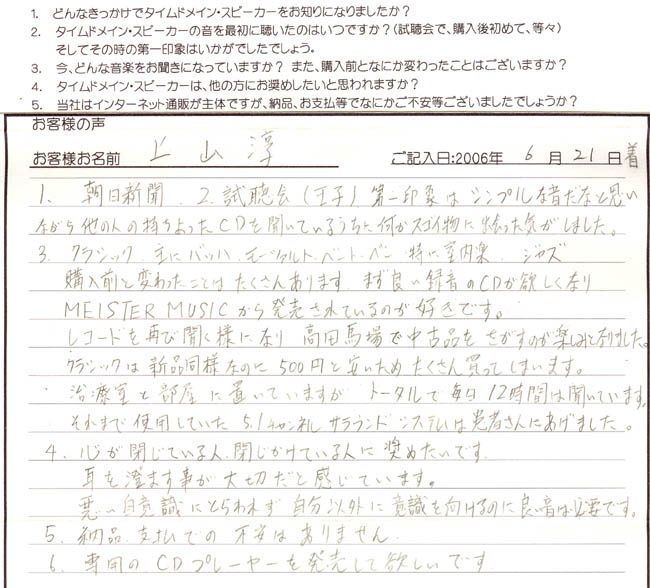 1. どんなきっかけでタイムドメイン・スピーカーをお知りになりましたか？
2. タイムドメイン・スピーカーの音を最初に聴いたのはいつですか？（試聴会で、購入後初めて、等々）
そしてその時の第一印象はいかがでしたでしょう。
3. 今、どんな音楽をお聞きになっていますか？ また、購入前となにか変わったことはございますか？
4. タイムドメイン・スピーカーは、他の方にお奨めしたいと思われますか？
5. 当社はインターネット通販が主体ですが、納品、お支払等でなにかご不安等ございましたでしょうか？
お客様の声
お客様お名前 上山 淳 ご記入日:2006年 6 月 21 日 着
1. 朝日新聞. 2. 試聴会（王子）第一印象は シンプルな音だなと思い
ながら 他の人の持ちよったCDを聞いているうちに何かスゴイ物に出会った気がしました。
3. クラシック. 主に バッハ. モーツァルト. ベートーベン 特に室内楽. ジャズ
購入前と変わったことは たくさんあります まず良い録音のCDが欲しくなり
MEISTER MUSICから発売されているのが好きです。
レコードを再び聞く様になり 高田馬場で中古品を さがすのが楽しみとなりました。
クラシックは新品同様なのに 500円と安いため たくさん買ってしまいます。
治療室と部屋に置いていますが トータルで毎日12時間は聞いています。
それまで使用していた 5.1チャンネル サラウンド システムは患者さんにあげました。
4. 心が閉じている人. 閉じかけている人に 奨めたいです.
耳を澄ます事が大切だと感じています。
悪い自意識にとらわれず 自分以外に意識を向けるのに良い音は必要です。
5. 納品. 支払での 不安は ありません.
6. 専用の CDプレーヤーを発売して欲しいです